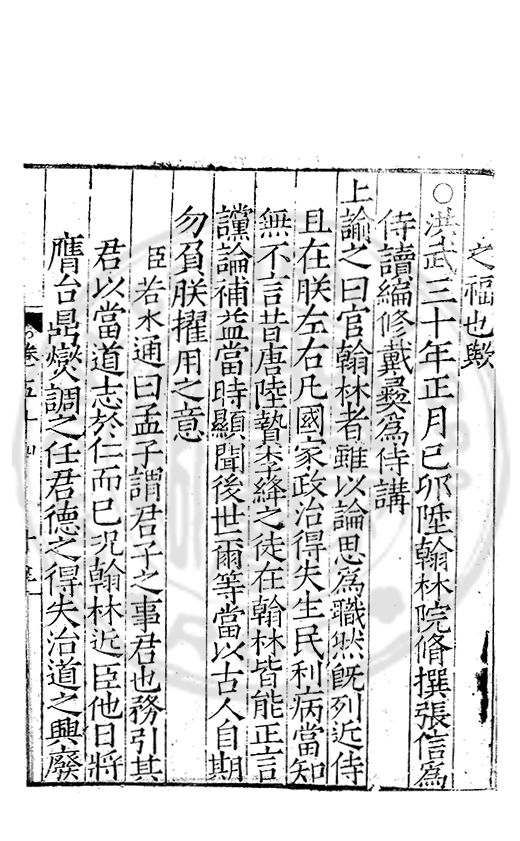 之福也歟
○洪武三十年正月己卯陞翰林院脩撰張信爲
侍讀編修戴彝爲侍講
上諭之曰官翰林者雖以論思爲職然旣列近侍
且在朕左右凡國家政治得失生民利病當知
無不言昔唐陸贄李絳之徒在翰林皆能正言
讜論補益當時顯聞後世爾等當以古人自期
勿負朕擢用之意
臣若水通曰孟子謂君子之事君也務引其
君以當道志於仁而已况翰林近臣他日將
膺台鼎燮調之任君德之得失治道之興廢
卷五十四